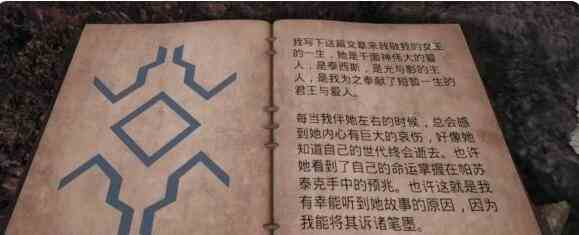 我写下这篇文章来我敬我的女王
的一生，她是千面神伟大的爱
人，是泰西斯，是光与影的主
人，是我为之奉献了短暂一生的
君王与爱人。
每当我伴她左右的时候，总会感
到她内心有巨大的哀伤，好像她
知道自己的世代终会逝去。也许
她看到了自己的命运掌握在帕苏
泰克手中的预兆。也许这就是我
有幸能听到她故事的原因，因为
我能将其诉诸笔墨。